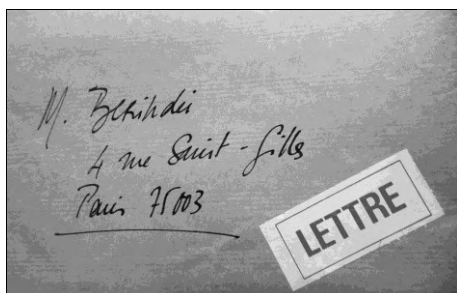 M. Berindei
4 rue Saint-Gilles
Paris 75003
LETTRE